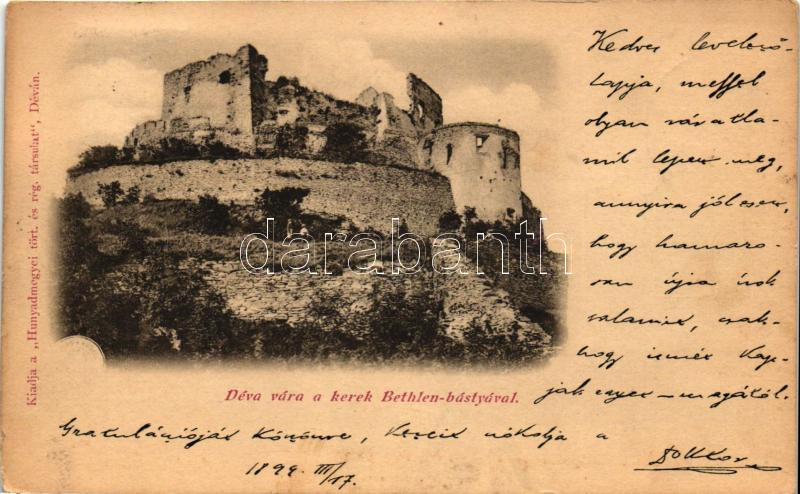 Kedves levelező-
lapja, mellyel
olyan váratla-
nul lepett meg,
annyira jól esett,
hogy hamaro-
san újra írok
valamit, csak-
hogy ismét kap-
jak egyet magától.
Gratulációját köszönve, kezeit csókolja a
1899. III/17.
Déva vára a kerek Bethlen-bástyával.
Kiadja a „Hunyadmegyei tört. és rég. társulat", Déván.
darabanth